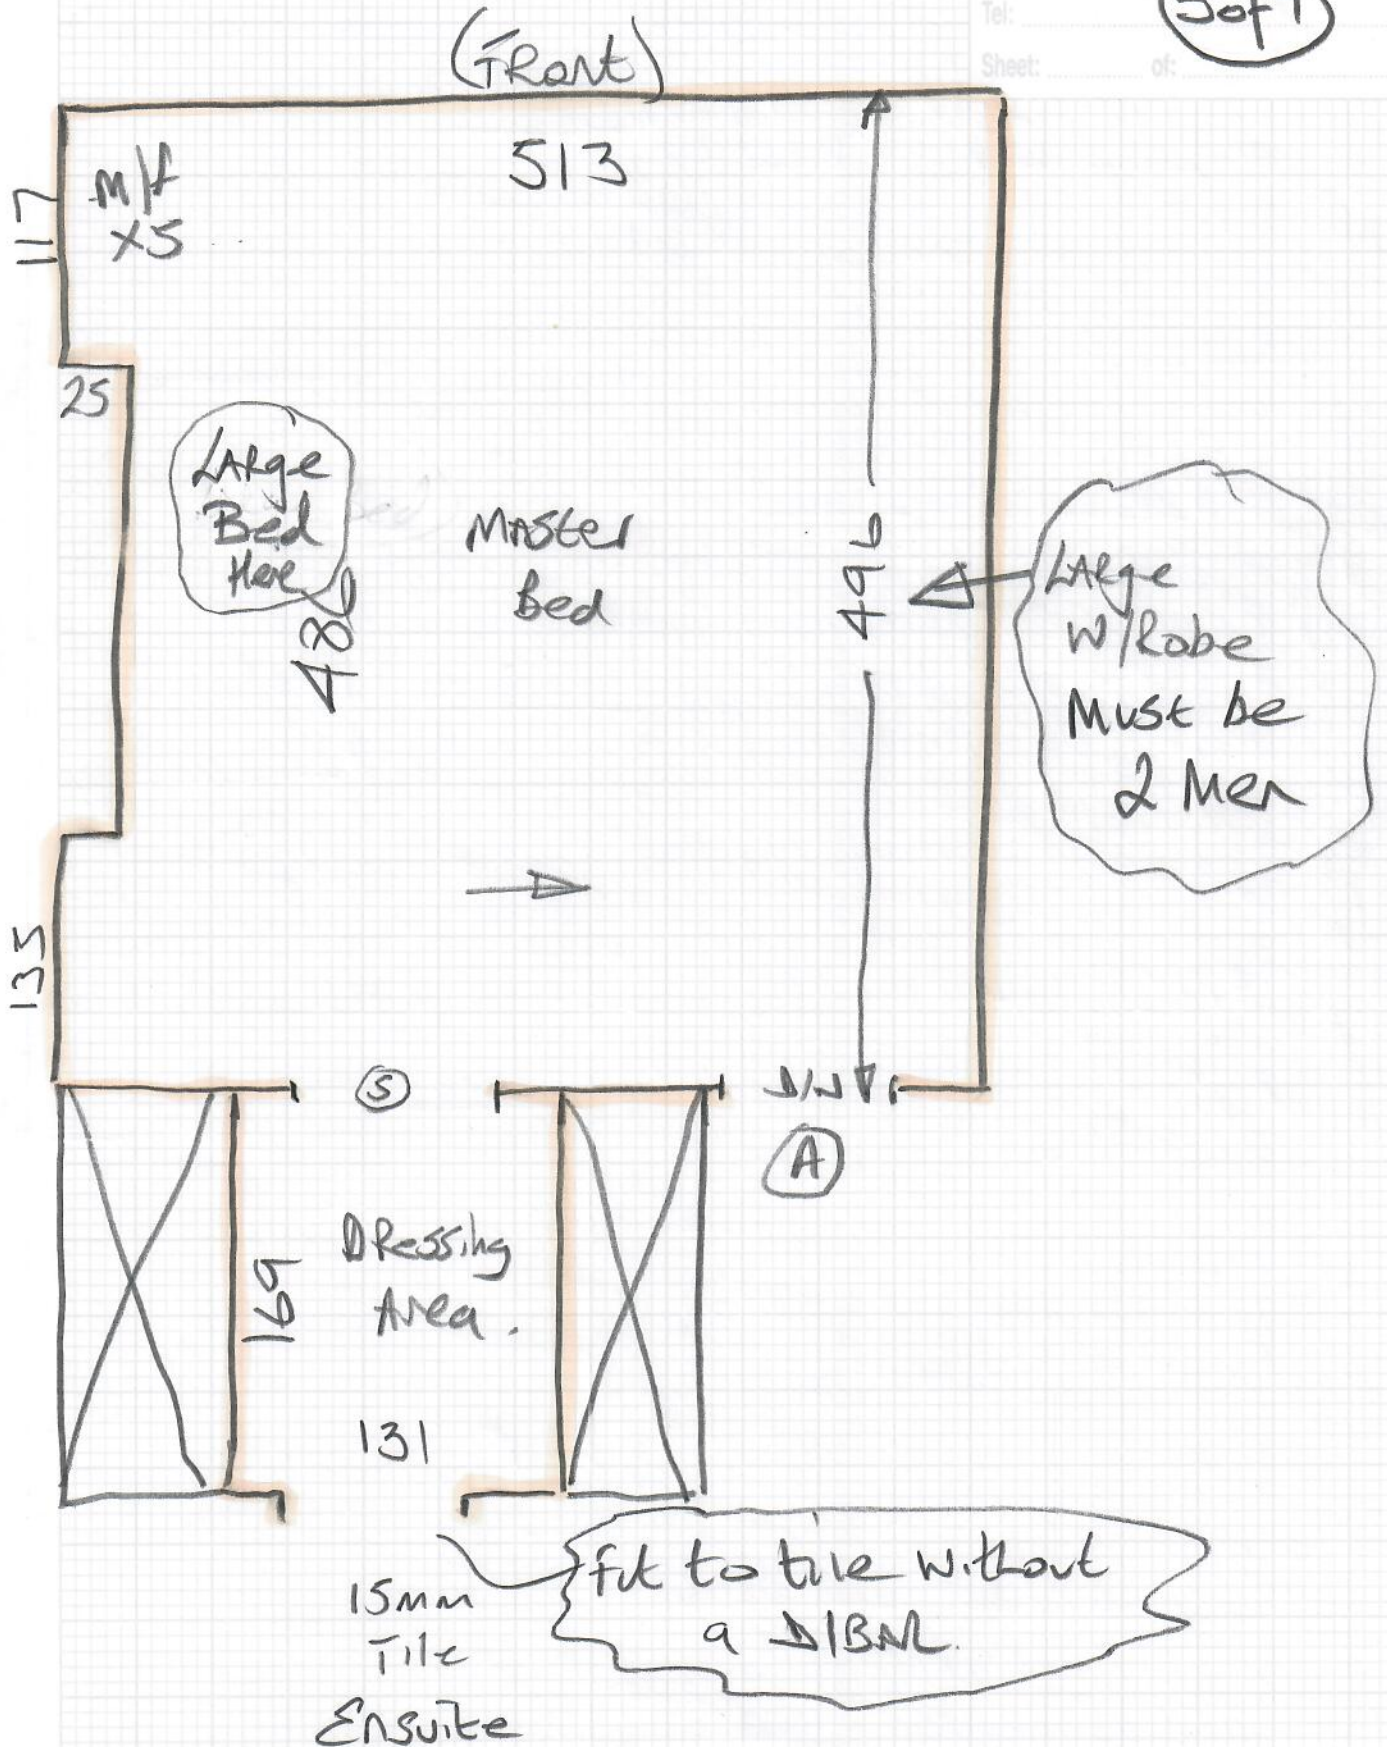 Tel:
5 of 1
Sheet: of:
(Front)
513
117
M/f
x5
25
Large
Bed
Here
486
Master
Bed
496
Large
W/Robe
Must be
2 Men
135
S
D/W
A
169
Dressing
Area.
131
15mm
Tile
Ensuite
fit to tile without
a D/BAR.